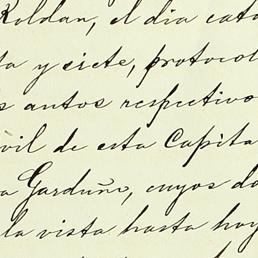 Roldan, el dia cato
ta y siete, protocol
s autos respectivo
vil de esta Capita
a Garduño, cuyos do
la vista hasta hoy